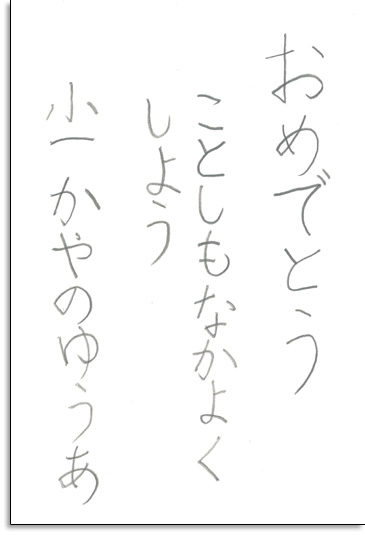 おめでとう
ことしもなかよく
しよう
小一かやのゆうあ